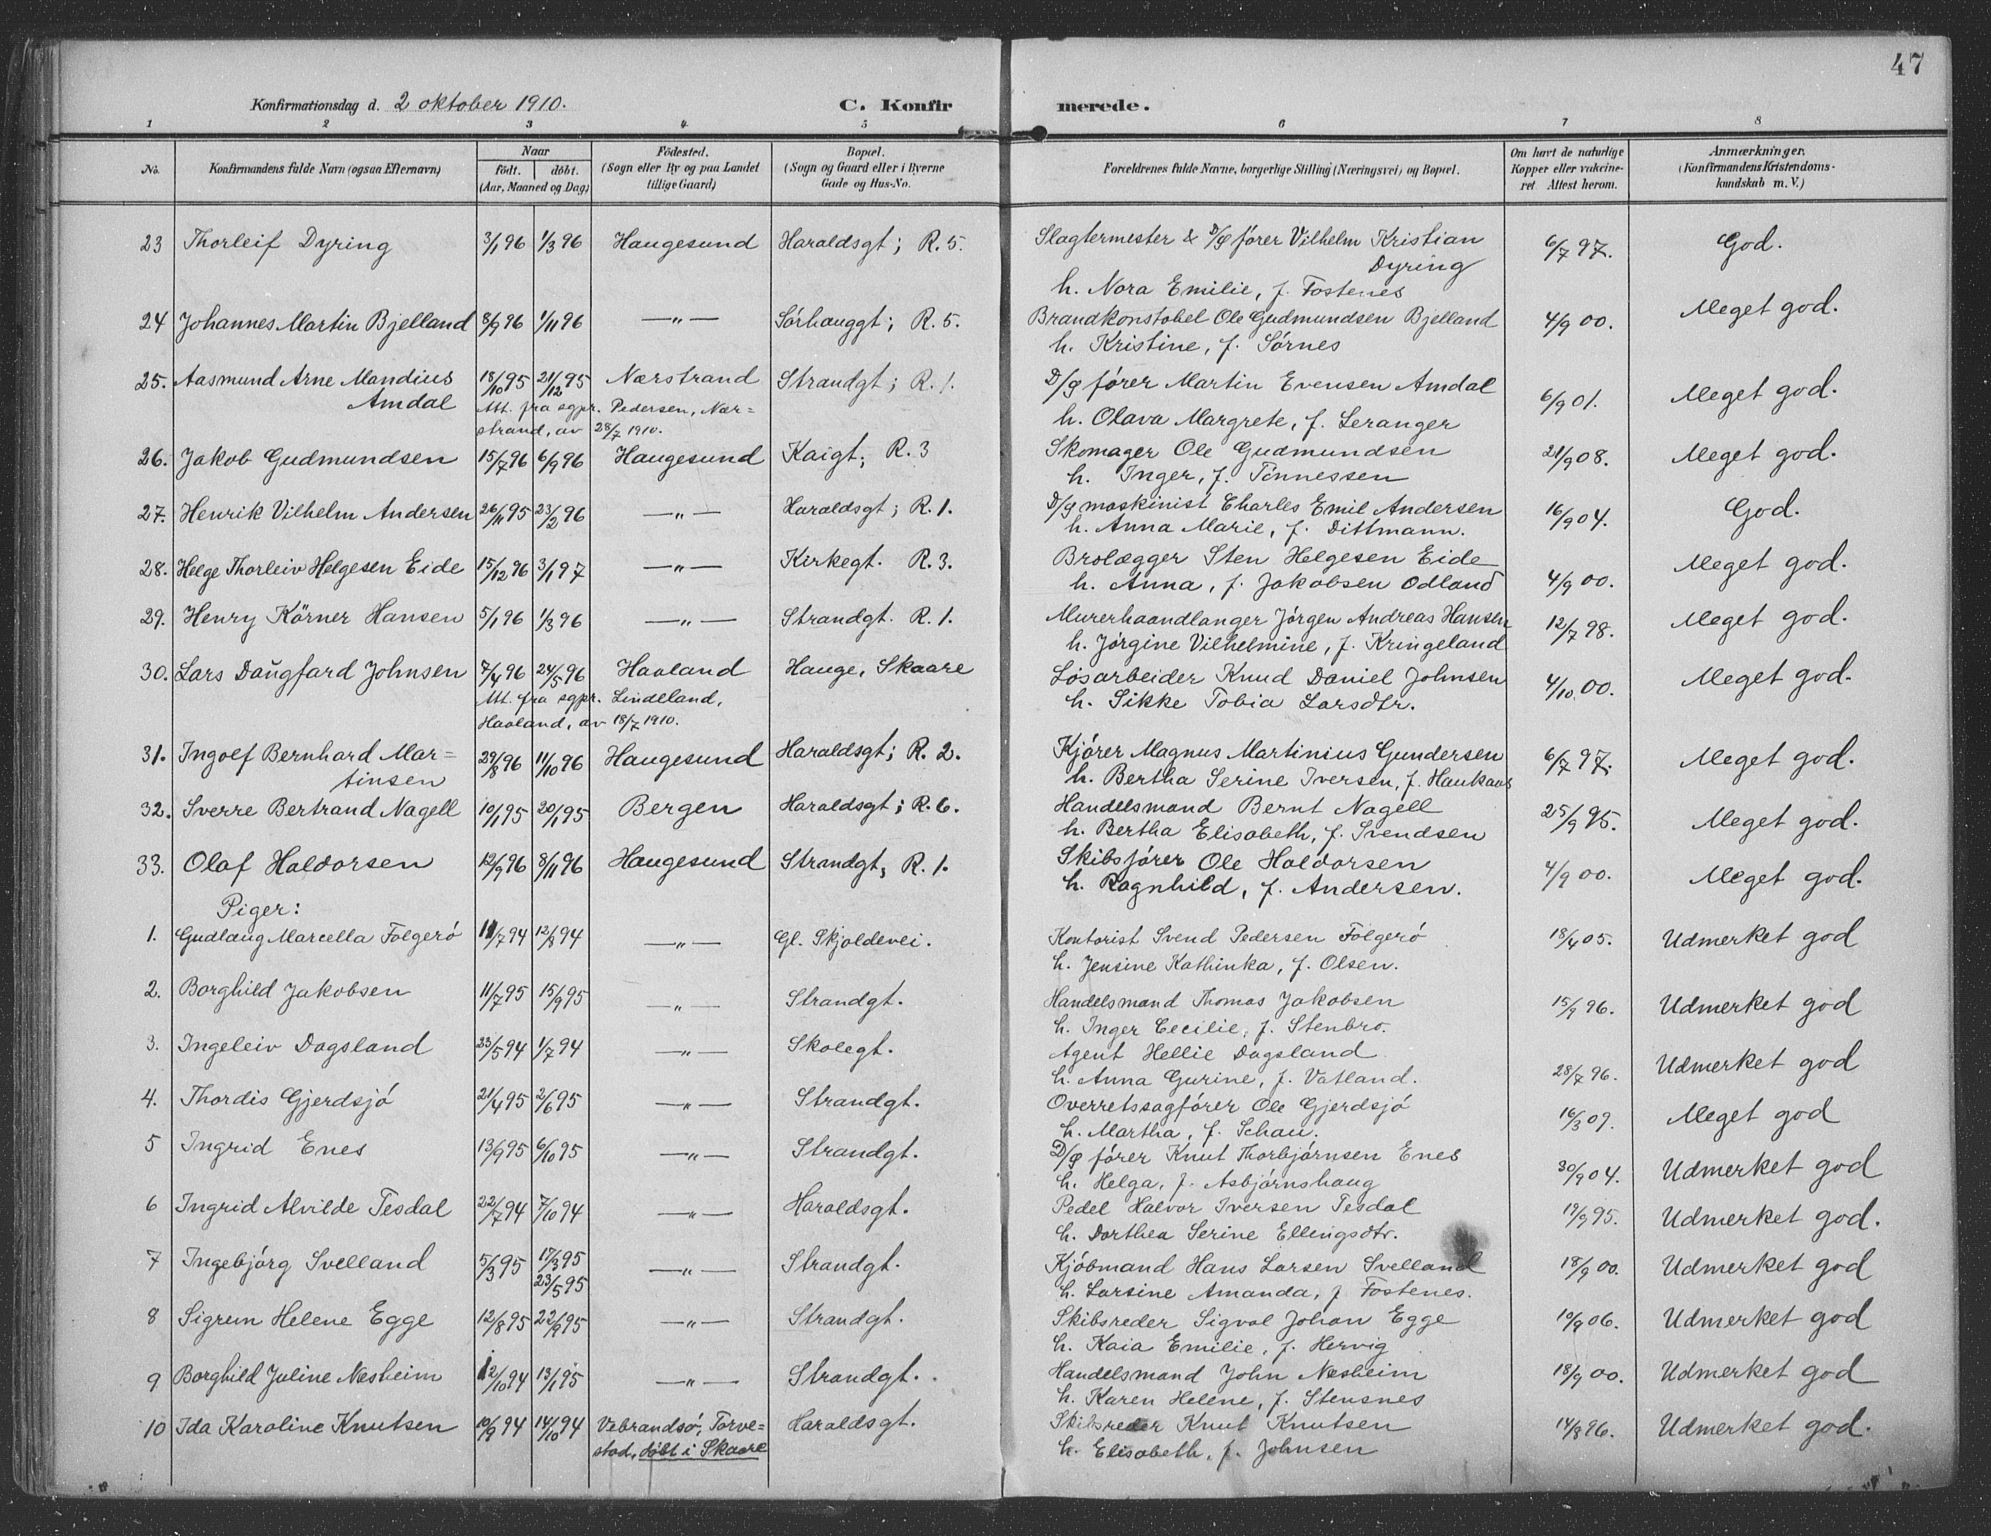 47
Konfirmationsdag d. 2 oktober 1910. C. Konfir merede.
1 2 3 4 5 6 7 8
No. Konfirmandens fulde Navn (ogsaa Efternavn) Naar födt. döbt. (Aar, Maaned og Dag) Födested. (Sogn eller By og paa Landet tillige Gaard) Bopæl. (Sogn og Gaard eller i Byerne Gade og Hus-No. Forældrenes fulde Navne, borgerlige Stilling (Næringsvei) og Bopæl. Om havt de naturlige Kopper eller vakcineret Attest herom. Anmærkninger. (Konfirmandens Kristendomskundskab m. V.)
23 Thorleif Dyring 3/1 96 1/3 96 Haugesund Haraldsgt; R. 5. Slagtermester & D/g fører Vilhelm Kristian 6/7 97. God.
Dyring
h. Nora Emilie, f. Fostenes
24 Johannes Martin Bjelland 8/9 96 1/11 96 —"— Sørhauggt; R. 5. Brandkonstabel Ole Gudmundsen Bjelland 4/9 00. Meget god.
h. Kristine, f. Sørnes
25. Aasmund Arne Mandius 18/10 95 21/12 95 Nærstrand Strandgt; R. 1. D/g fører Martin Evensen Amdal 6/9 01. Meget god.
Amdal Att. fra sgpr. Pedersen, Nær= h. Olava Margrete, f. Leranger
strand, av 28/7 1910.
26. Jakob Gudmundsen 15/7 96 6/9 96 Haugesund Kaigt; R. 3 Skomager Ole Gudmundsen 21/9 08. Meget god.
h. Inger, f. Tönnessen
27. Henrik Vilhelm Andersen 26/11 95 23/2 96 —"— Haraldsgt; R. 1. D/g maskinist Charles Emil Andersen 16/9 04. God.
h. Anna Marie, f. Dittmann.
28. Helge Thorleiv Helgesen Eide 15/12 96 3/1 97 —"— Kirkegt. R. 3. Brolægger Sten Helgesen Eide 4/9 00. Meget god.
h. Anna, f. Jakobsen Odland
29. Henry Körner Hansen 5/1 96 1/3 96 —"— Strandgt. R. 1. Murerhaandlanger Jørgen Andreas Hansen 12/7 98. Meget god.
h. Jørgine Vilhelmine, f. Kringeland
30. Lars Daugfard Johnsen 7/4 96 24/5 96 Haaland Hauge, Skaare Løsarbeider Knud Daniel Johnsen 4/10 00. Meget god.
Att. fra sgpr. Lindeland, h. Sikke Tobia Larsdtr.
Haaland, av 18/7 1910.
31. Ingolf Bernhard Mar= 29/8 96 11/10 96 Haugesund Haraldsgt; R. 2. Kjører Magnus Martinius Gundersen 6/7 97. Meget god.
tinsen h. Bertha Serine Iversen, f. Haukaas
32. Sverre Bertrand Nagell 10/1 95 20/1 95 Bergen Haraldsgt; R. 6. Handelsmand Bernt Nagell 25/9 95. Meget god.
h. Bertha Elisabeth, f. Svendsen
33. Olaf Haldorsen 12/9 96 8/11 96 Haugesund Strandgt, R. 1. Skibsfører Ole Haldorsen 4/9 00. Meget god.
h. Ragnhild, f. Andersen.
Piger:
1. Gudlaug Marcella Følgerö 11/7 94 12/8 94 —"— Gl. Skjoldevei. Kontorist Svend Pedersen Følgerö 18/4 05. Udmerket god
h. Jensine Kathinka, f. Olsen.
2. Borghild Jakobsen 11/7 95 15/9 95 —"— Strandgt. Handelsmand Thomas Jakobsen 15/9 96. Udmerket god
h. Inger Cecilie, f. Stenbro.
3. Ingeleiv Dagsland 23/5 94 1/7 94 —"— Skolegt. Agent Hellie Dagsland 28/7 96. Udmerket god
h. Anna Gurine, f. Vatland.
4. Thordis Gjerdsjö 21/4 95 2/6 95 —"— Strandgt. Overretssagfører Ole Gjerdsjö 16/3 07. Meget god
h. Martha, f. Schau.
5 Ingrid Enes 13/9 95 6/10 95 —"— Strandgt. D/g fører Knut Thorbjørnsen Enes 30/9 04. Udmerket god
h. Helga, f. Asbjørnshaug
6 Ingrid Alvilde Tesdal 22/7 94 7/10 94 —"— Haraldsgt. Pedel Halvor Iversen Tesdal 19/9 95. Udmerket god.
h. Dorthea Serine Ellingsdtr.
7 Ingebjörg Svelland 5/3 95 17/3 95 —"— Strandgt. Kjøbmand Hans Larsen Svelland 18/9 00. Udmerket god
23/5 95 h. Larsine Amanda, f Fostenes.
8 Sigrun Helene Egge 12/8 95 22/9 95 —"— Strandgt. Skibsreder Sigval Johan Egge 19/9 06. Udmerket god
h. Kaia Emilie, f. Hervig
9 Borghild Juline Nesheim 12/10 94 13/1 95 —"— Strandgt. Handelsmand John Nesheim 18/9 00. Udmerket god
h. Karen Helene, f. Stensnes
10 Ida Karoline Knutsen 10/9 94 14/10 94 Vebrandsö, Torve= Haraldsgt. Skibsreder Knut Knutsen 14/8 96. Udmerket god.
stad, döbt i Skaare h. Elisabeth, f. Johnsen